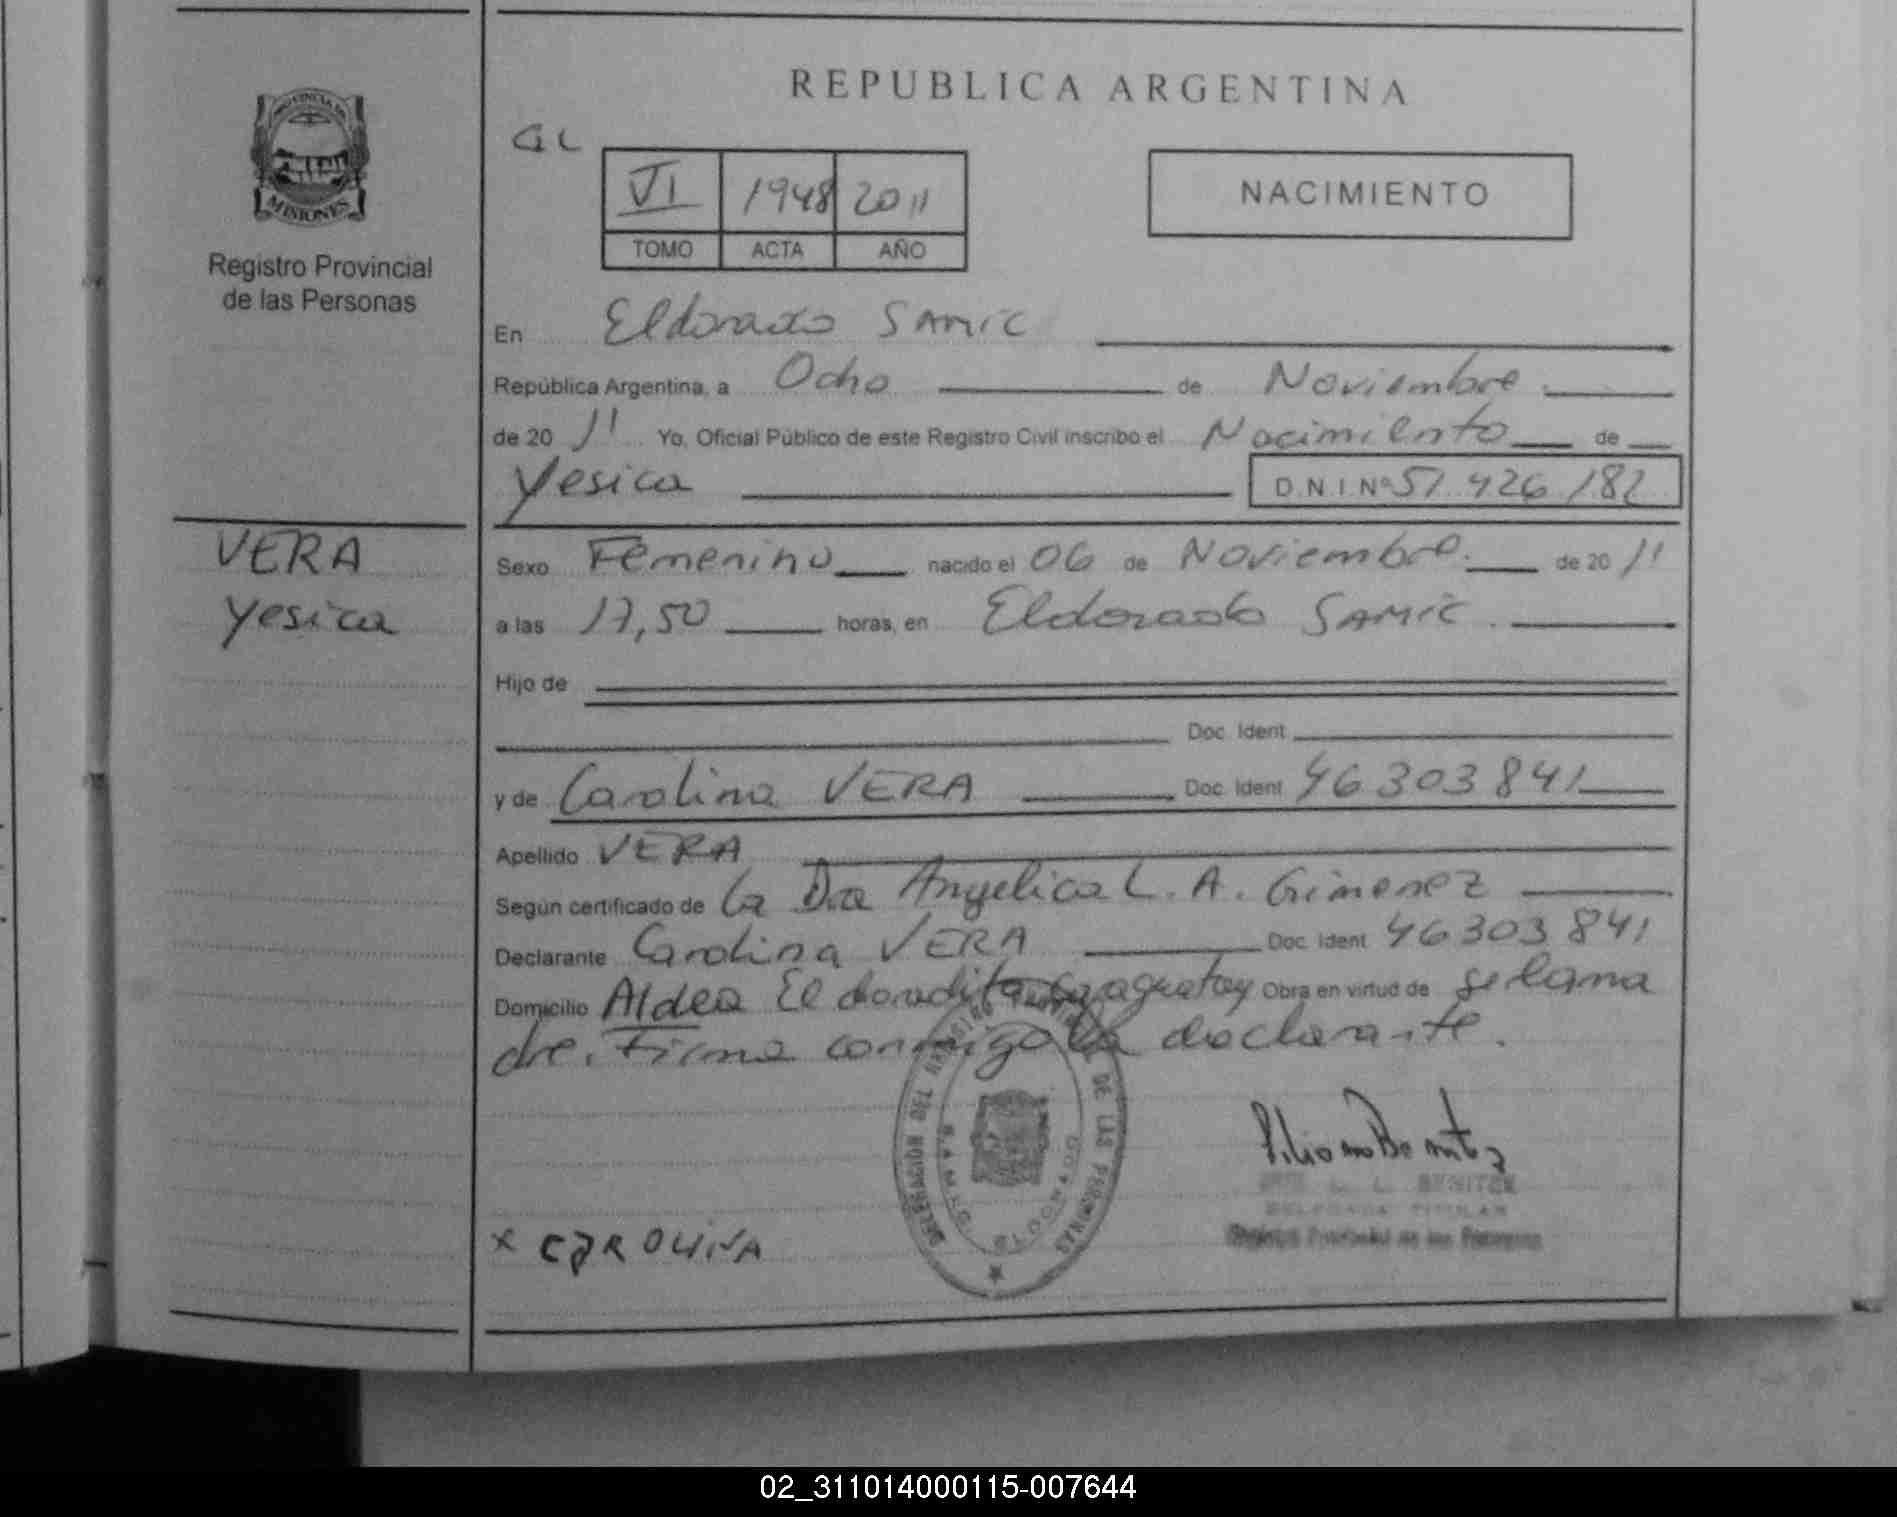 REPUBLICA ARGENTINA
PROVINCIA DE
MISIONES
Registro Provincial
de las Personas
GL
VI 1948 2011
TOMO ACTA AÑO
NACIMIENTO
En Eldorado SAMIC
República Argentina, a Ocho de Noviembre
de 20 11 Yo, Oficial Público de este Registro Civil inscribo el Nacimiento de
Yesica D.N.I.Nº 51.426.182
VERA
Yesica
Sexo Femenino nacido el 06 de Noviembre de 20 11
a las 17,50 horas, en Eldorado SAMIC
Hijo de
Doc. Ident.
y de Carolina VERA Doc. Ident. 46303841
Apellido VERA
Según certificado de la Dra Angelica L. A. Gimenez
Declarante Carolina VERA Doc. Ident. 46303841
Domicilio Aldea El doradito Caraguatay Obra en virtud de ser la ma
dre. Firma conmigo la declarante.
DELEGACION DEL REGISTRO DE LAS PERSONAS
ELDORADO
BENITEZ
DELEGADA TITULAR
Registro Provincial de las Personas
x CAROLINA
02_311014000115-007644